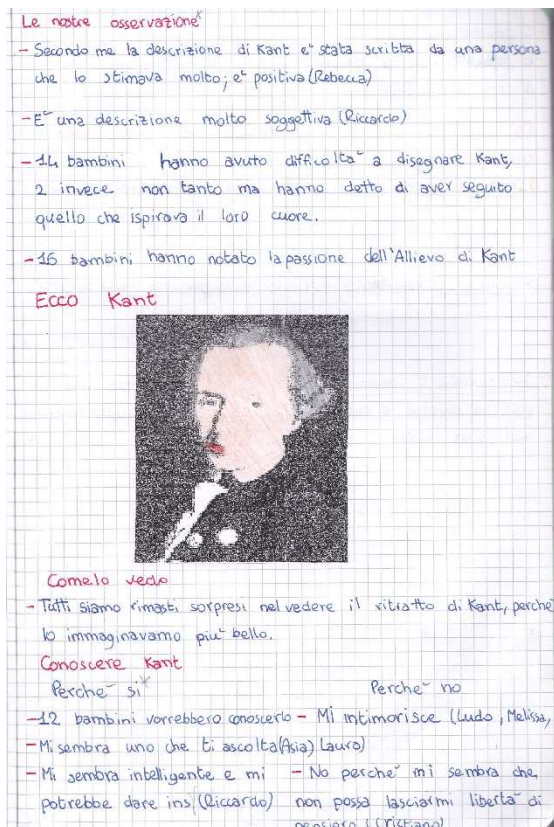 Le nostre osservazione
- Secondo me la descrizione di Kant e' stata scritta da una persona
che lo stimava molto; e' positiva (Rebecca)
- E' una descrizione molto soggettiva (Riccardo)
- 14 bambini hanno avuto difficolta' a disegnare Kant,
2 invece non tanto ma hanno detto di aver seguito
quello che ispirava il loro cuore.
- 16 bambini hanno notato la passione dell'Allievo di Kant
Ecco Kant
Come lo vedo
- Tutti siamo rimasti sorpresi nel vedere il ritratto di Kant, perche'
lo immaginavamo piu' bello.
Conoscere Kant
Perche' si Perche' no
- 12 bambini vorrebbero conoscerlo - Mi intimorisce (Ludo, Melissa,
- Mi sembra uno che ti ascolta (Asia) Laura)
- Mi sembra intelligente e mi - No perche' mi sembra che
potrebbe dare ins (Riccardo) non possa lasciarmi liberta' di
pensiero (Cristiano)